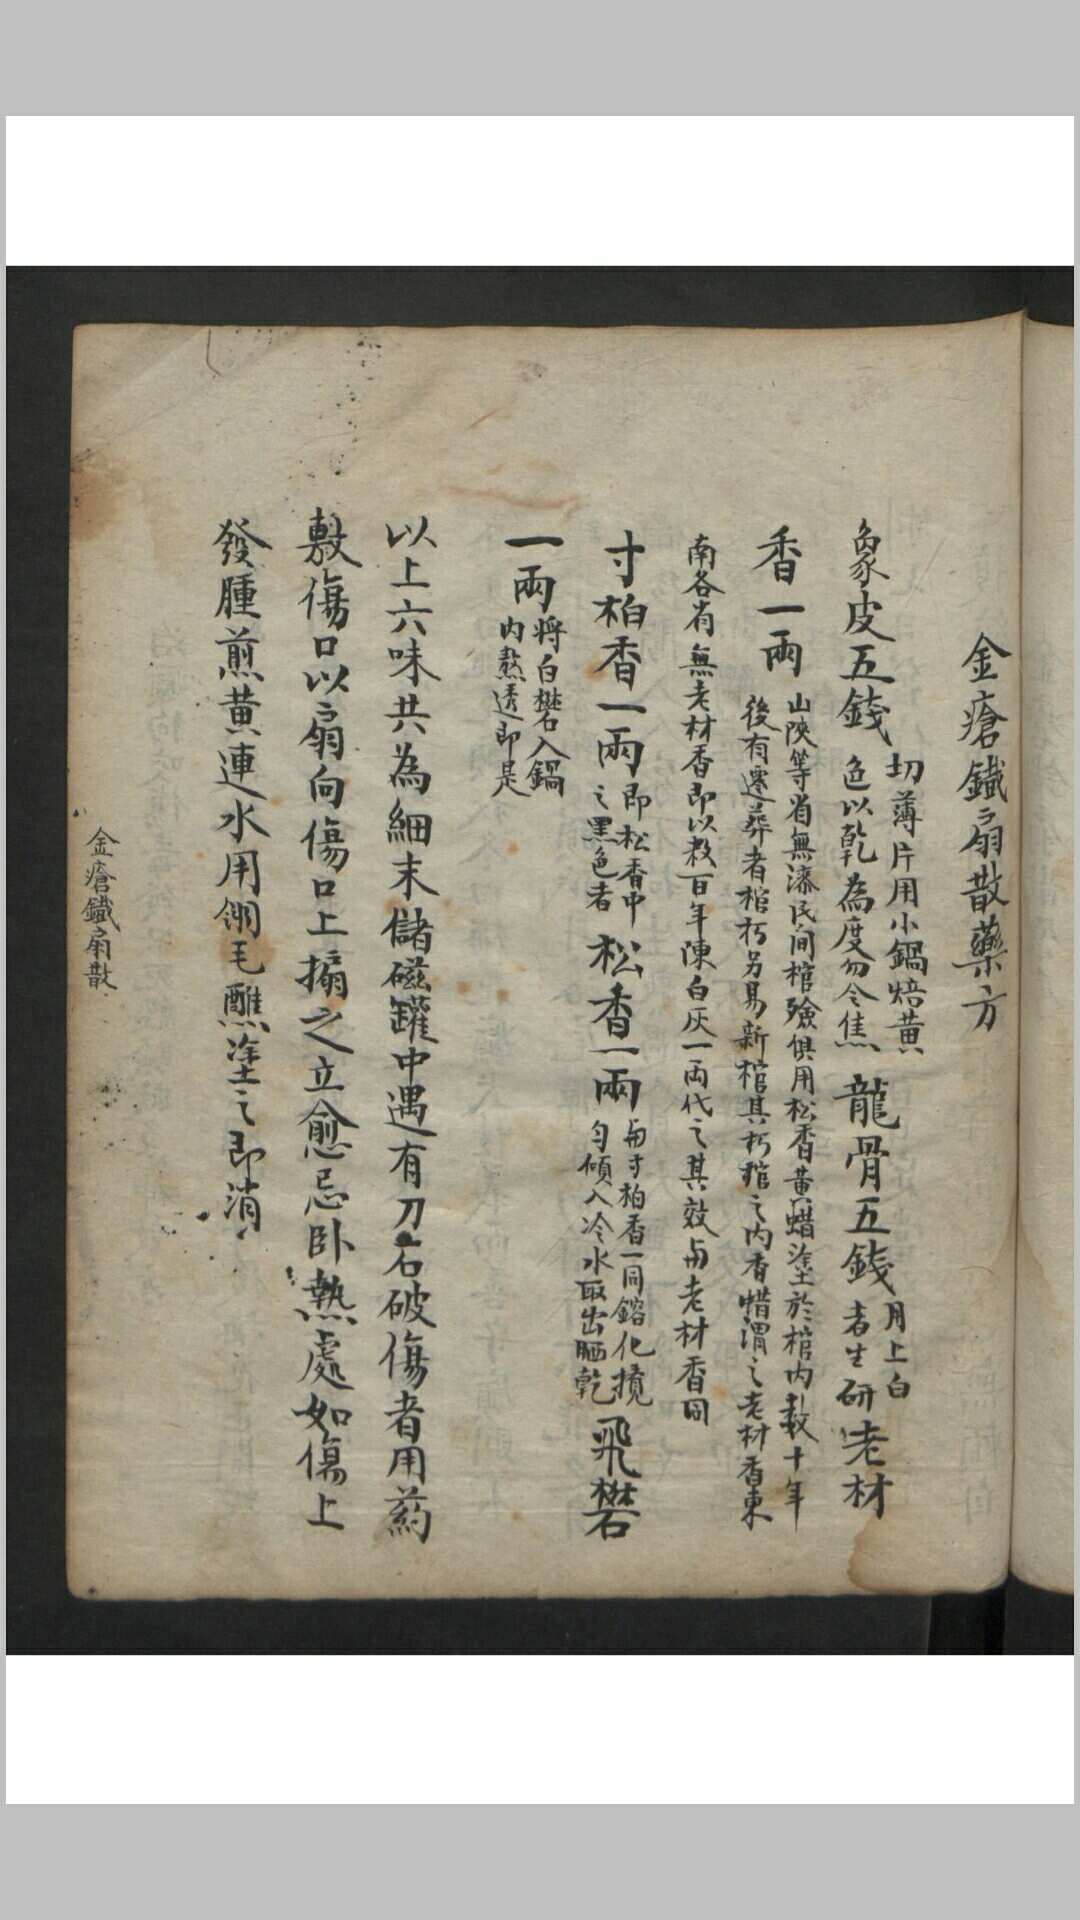 金瘡鐵扇散藥方
象皮五錢 切薄片用小鍋焙黃色以乾為度勿令焦 龍骨五錢 用上白者生研 老材
香一兩 山陝等省無漆民間棺殮俱用松香黃蜡塗於棺內数十年後有遷葬者棺朽另易新棺其朽棺之內香蜡謂之老材香東
南各省無老材香即以数百年陳白灰一兩代之其效与老材香同
寸柏香一兩 即松香中之黑色者 松香一兩 与寸柏香一同鎔化攪匀傾入冷水取出晒乾 飛礬
一兩 将白礬入鍋内熬透即是
以上六味共為細末儲磁罐中遇有刀石破傷者用葯
敷傷口以扇向傷口上搧之立愈忌卧熱處如傷上
發腫煎黃連水用翎毛醮塗之即消
金瘡鐵扇散